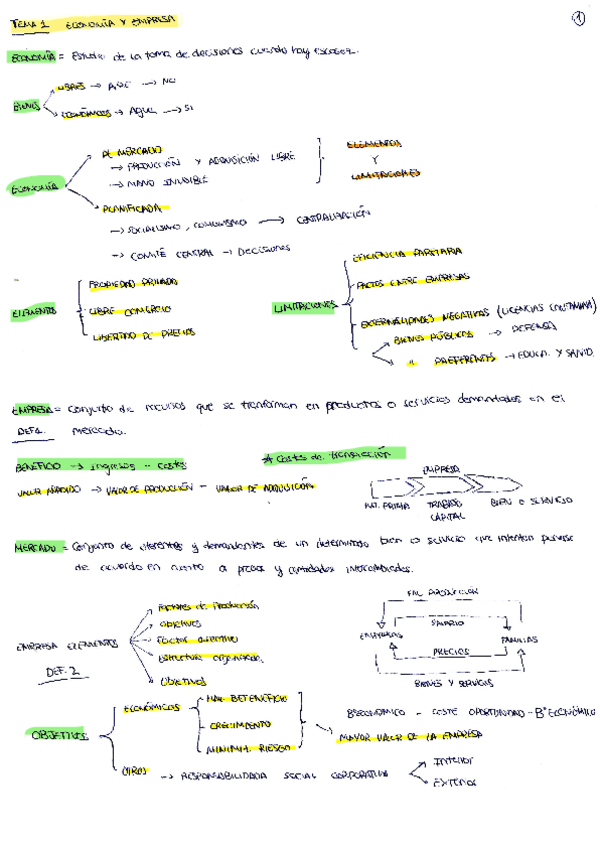 TEMA 1 ECONOMÍA Y EMPRESA
1
ECONOMÍA = Estudio de la toma de decisiones cuando hay escasez.
BIENES
LIBRES → → NO
ECONÓMICOS → Agua → SI
ECONOMÍA
DE MERCADO
→ PRODUCCIÓN Y ADQUISICIÓN LIBRE
→ MANO INVISIBLE
ELEMENTOS
Y
LIMITACIONES
PLANIFICADA
→ SOCIALISMO, COMUNISMO → CENTRALIZACIÓN
→ COMITÉ CENTRAL → DECISIONES
ELEMENTOS
PROPIEDAD PRIVADA
LIBRE COMERCIO
LIBERTAD DE PRECIOS
LIMITACIONES
EFICIENCIA PARETIANA
PACTOS ENTRE EMPRESAS
EXTERNALIDADES NEGATIVAS (LICENCIAS CONTAMINA)
BIENES PÚBLICOS → DEFENSA
" PREFERENTES → EDUCA. Y SANID.
EMPRESA = Conjunto de recursos que se tranforman en productos o servicios demandados en el
DEF1. mercado.
BENEFICIO → Ingresos - costes
* Costes de transacción
VALOR AÑADIDO → VALOR DE PRODUCCIÓN - VALOR DE ADQUISICIÓN
EMPRESA
MAT. PRIMA TRABAJO BIEN O SERVICIO
CAPITAL
MERCADO = Conjunto de oferentes y demandantes de un determinado bien o servicio que intentan ponerse
de acuerdo en cuanto a precios y cantidades intercambiadas.
EMPRESA ELEMENTOS
DEF. 2
Factores de Producción
objetivos
Factor directivo
Estructura organizada.
Objetivos
FAC PRODUCCIÓN
SALARIO
EMPRESAS FAMILIAS
PRECIOS
BIENES Y SERVICIOS
OBJETIVOS
ECONÓMICOS
MAX. BETENEFICIO
CRECIMIENTO
MINIMIZ. RIESGO
Bº ECONÓMICO - COSTE OPORTUNIDAD - Bº ECONÓMICO
MAYOR VALOR DE LA EMPRESA
OTROS → RESPONSABILIDADA SOCIAL CORPORATIVA
INTERIOR
EXTERIOR